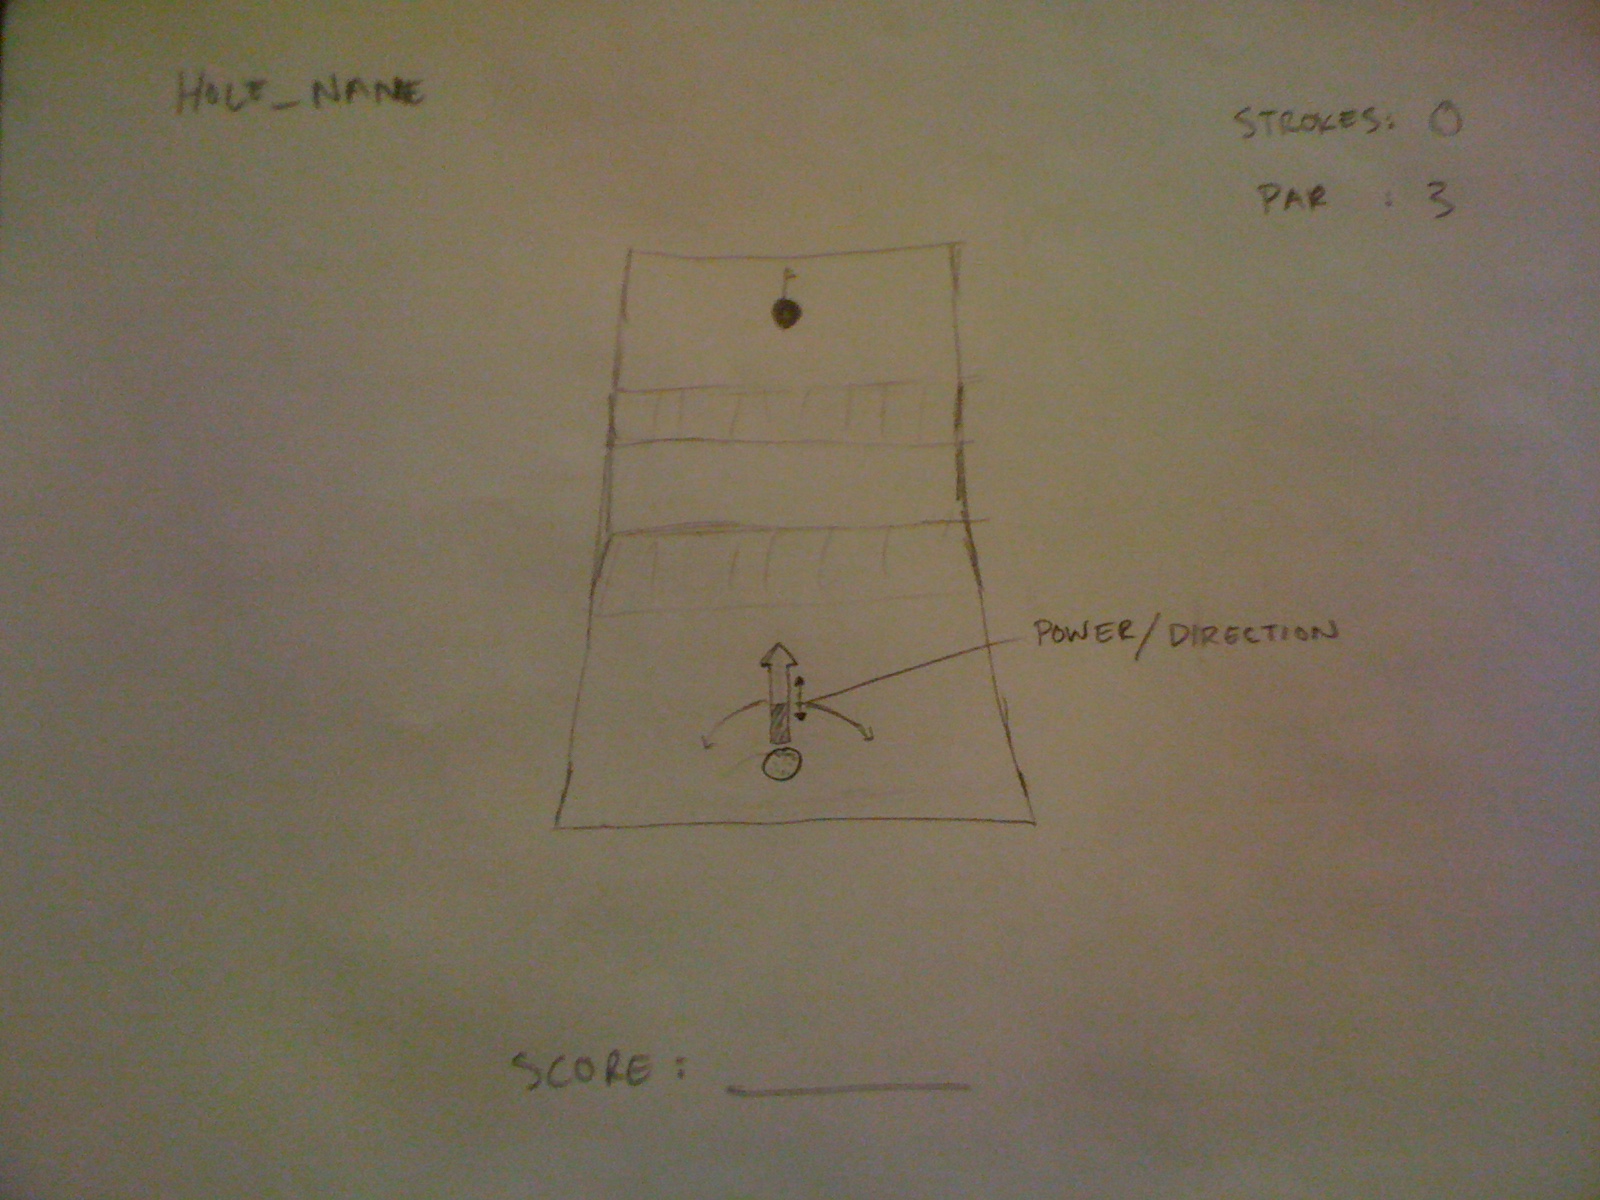 HOLE_NAME
STROKES: 0
PAR : 3
POWER/DIRECTION
SCORE: